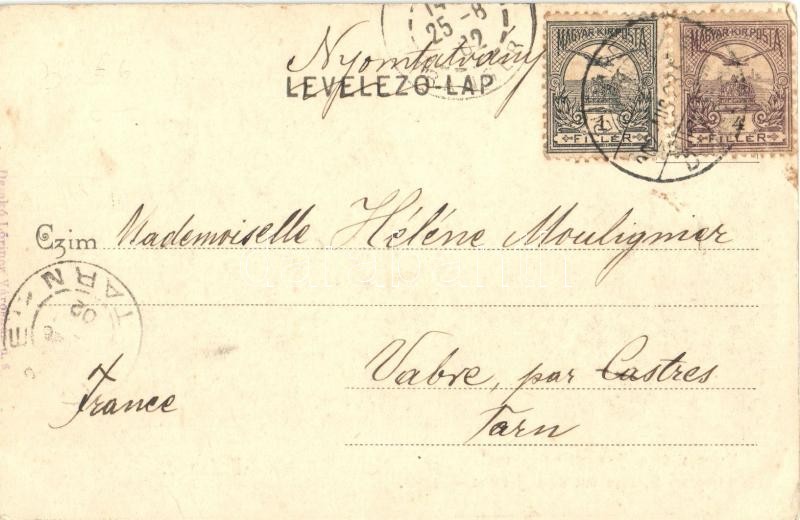 Nyomtatvány
LEVELEZŐ-LAP
MAGYAR·KIR·POSTA
1
FILLÉR
MAGYAR·KIR·POSTA
4
FILLÉR
25-8
Czim Mademoiselle Héléne Moulignier
TARN
02
Vabre, par Castres
France
Tarn
darabanth